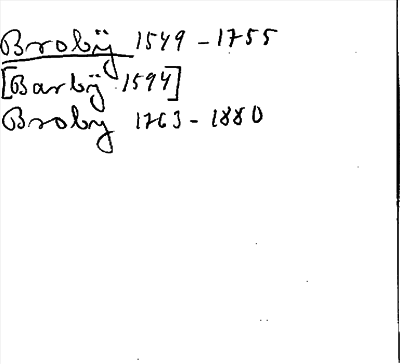 Brobÿ 1549 - 1755
[Barbÿ 1594]
Broby 1763 - 1880